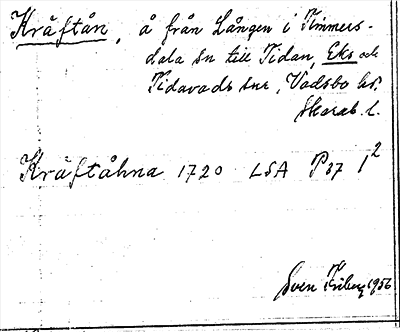 Kräftån, å från Lången i Timmers-
dala sn till Tidan, Eks och
Tidavads snr, Vadsbo hd.
Skarab. l.
Kräftåhna 1720 LSA P37 1²
Sven Friberg 1956